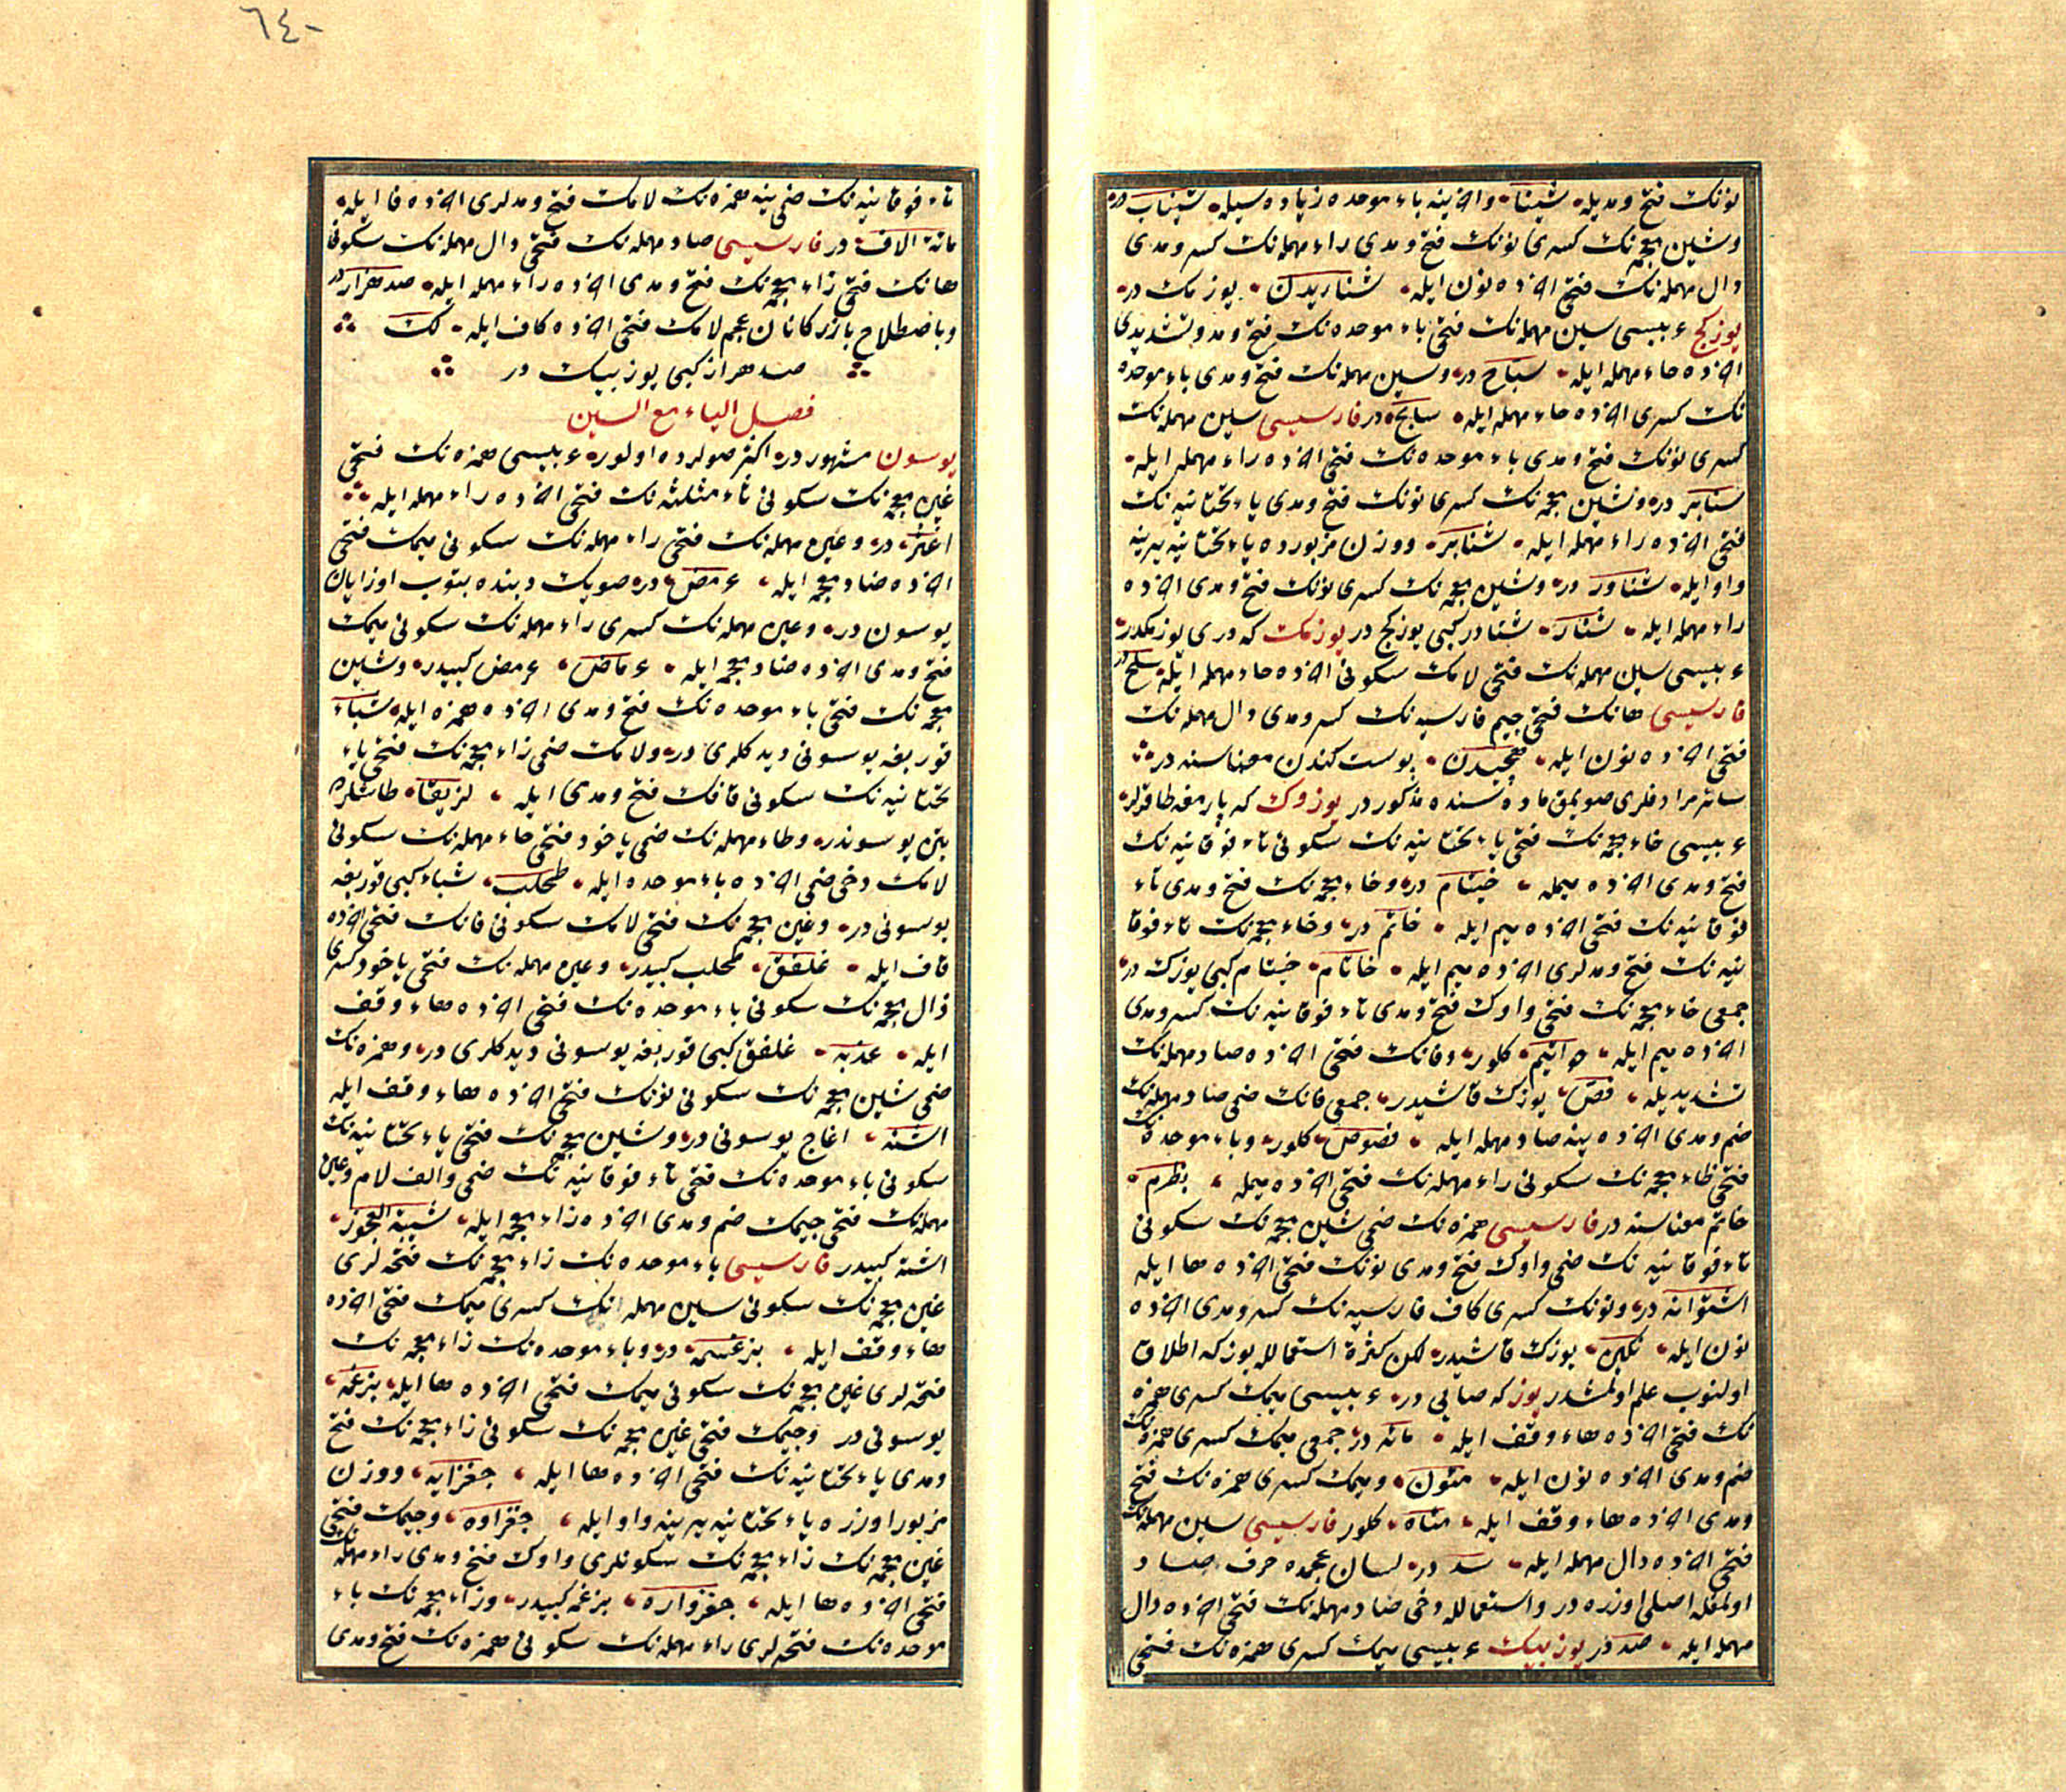 نونك فتح و مديله شينا و آخرينه باء موحده زياده سيله شيناب در
و شين معجمه نك كسرى نونك فتح و مدى راء مهمله نك كسر و مدى
دال مهمله نك فتحى آخرده نون ايله شناريدن يوزمك در
يوزكج عربيسى سين مهمله نك فتحى باء موحده نك فتح و مد و تشديدى
آخرده حاء مهمله ايله سباح در و سين مهمله نك فتح و مدى باء موحده
نك كسرى آخرده حاء مهمله ايله سابح در فارسيسى سين مهمله نك
كسرى نونك فتح و مدى باء موحده نك فتحى آخرده راء مهمله ايله
سنابر در و شين معجمه نك كسرى نونك فتح و مدى ياء تحتانيه نك
فتحى آخرده راء مهمله ايله شناير و وزن مزبورده ياء تحتانيه يرينه
واو ايله شناور در و شين معجمه نك كسرى نونك فتح و مدى آخرده
راء مهمله ايله شنار شناور كبى يوزكج در يوزمك كه درى يوزمكدر
عربيسى سين مهمله نك فتحى لامك سكونى آخرده حاء مهمله ايله سلخ در
فارسيسى هانك فتحى جيم فارسيه نك كسر و مدى دال مهمله نك
فتحى آخرده نون ايله هچيدن پوست كندن معناسنه در
سائر مرادفلرى صويمق ماده سنده مذكور در يوزوك كه پارمغه طاقرلر
عربيسى خاء معجمه نك فتحى ياء تحتانيه نك سكونى تاء فوقانيه نك
فتح و مدى آخرده ميمله خيتام در و خاء معجمه نك فتح و مدى تاء
فوقانيه نك فتحى آخرده ميم ايله خاتم در و خاء معجمه نك تاء فوقا
نيه نك فتح و مدلرى آخرده ميم ايله خاتام خيتام كبى يوزك در
جمعى خاء معجمه نك فتحى واوك فتح و مدى تاء فوقانيه نك كسر و مدى
آخرده ميم ايله خواتيم كلور و فانك فتحى آخرده صاد مهمله نك
تشديديله فص يوزك قاشيدر جمعى فانك ضمى صاد مهمله نك
ضم و مدى آخرده ينه صاد مهمله ايله فصوص كلور و باء موحده نك
فتحى ظاء معجمه نك سكونى راء مهمله نك فتحى آخرده ميمله بظرم
خاتم معناسنه در فارسيسى همزه نك ضمى شين معجمه نك سكونى
تاء فوقانيه نك ضمى واوك فتح و مدى نونك فتحى آخرده ها ايله
اشتوانه در و نونك كسرى كاف فارسيه نك كسر و مدى آخرده
نون ايله نكين يوزك قاشيدر لكن كثرة استعمالله يوزكه اطلاق
اولنوب علم اولمشدر يوز كه صايى در عربيسى ميمك كسرى همزه
نك فتحى آخرده هاء وقف ايله مائه در جمعى ميمك كسرى همزه نك
ضم و مدى آخرده نون ايله مئون و ميمك كسرى همزه نك فتح
و مدى آخرده هاء وقف ايله مئاه كلور فارسيسى سين مهمله نك
فتحى آخرده دال مهمله ايله سد در لسان عجمده حرف صاد
اولمغله اصلى اوزره در و استعمالله دخى صاد مهمله نك فتحى آخرده دال
مهمله ايله صد در يوز بيك عربيسى ميمك كسرى همزه نك فتحى
٦٤٠
تاء فوقانيه نك ضمى ينه همزه نك لامك فتح و مدلرى آخرده فا ايله
مائة الاف در فارسيسى صاد مهمله نك فتحى دال مهمله نك سكونى
هانك فتحى زاء معجمه نك فتح و مدى آخرده راء مهمله ايله صد هزار در
و باصطلاح بازركانان عجم لامك فتحى آخرده كاف ايله لك
صد هزار كبى يوز بيك در
فصل الياء مع السين
يوسون مشهور در اكثر صولرده اولور عربيسى همزه نك فتحى
غين معجمه نك سكونى ثاء مثلثه نك فتحى آخرده راء مهمله ايله
اغثر در و عين مهمله نك فتحى راء مهمله نك سكونى ميمك فتحى
آخرده ضاد معجمه ايله عرمض در صويك دبنده بتوب اوزايان
يوسون در و عين مهمله نك كسرى راء مهمله نك سكونى ميمك
فتح و مدى آخرده ضاد معجمه ايله عرماض عرمض كبيدر و شين
معجمه نك فتحى باء موحده نك فتح و مدى آخرده همزه ايله شباء
قوربغه يوسونى ديدكلرى در و لامك ضمى زاء معجمه نك فتحى ياء
تحتانيه نك سكونى قافك فتح و مدى ايله لزيقا طاشلرده
بتن يوسوندر و طاء مهمله نك ضمى ياخود فتحى حاء مهمله نك سكونى
لامك دخى ضمى آخرده باء موحده ايله طحلب شباء كبى قوربغه
يوسونى در و غين معجمه نك فتحى لامك سكونى فانك فتحى آخرده
قاف ايله غلفق طحلب كبيدر و عين مهمله نك فتحى ياخود كسرى
ذال معجمه نك سكونى باء موحده نك فتحى آخرده هاء وقف
ايله عذبه غلفق كبى قوربغه يوسونى ديدكلرى در و همزه نك
ضمى شين معجمه نك سكونى نونك فتحى آخرده هاء وقف ايله
اشنه اغاج يوسونى در و شين معجمه نك فتحى ياء تحتانيه نك
سكونى باء موحده نك فتحى تاء فوقانيه نك ضمى و الف لام و عين
مهمله نك فتحى جيمك ضم و مدى آخرده زاء معجمه ايله شيبة العجوز
اشنه كبيدر فارسيسى باء موحده نك زاء معجمه نك فتحه لرى
غين معجمه نك سكونى سين مهمله نك كسرى ميمك فتحى آخرده
هاء وقف ايله بزغسمه در و باء موحده نك زاء معجمه نك
فتحه لرى غين معجمه نك سكونى ميمك فتحى آخرده ها ايله بزغمه
يوسونى در و جيمك فتحى غين معجمه نك سكونى زاء معجمه نك فتح
و مدى ياء تحتانيه نك فتحى آخرده ها ايله جغزايه و وزن
مزبور اوزره ياء تحتانيه يرينه واو ايله جغزاوه و جيمك فتحى
غين معجمه نك زاء معجمه نك سكونلرى واوك فتح و مدى راء مهمله نك
فتحى آخرده ها ايله جغزواره بزغمه كبيدر و زاء معجمه نك باء
موحده نك فتحه لرى راء مهمله نك سكونى همزه نك فتح و مدى